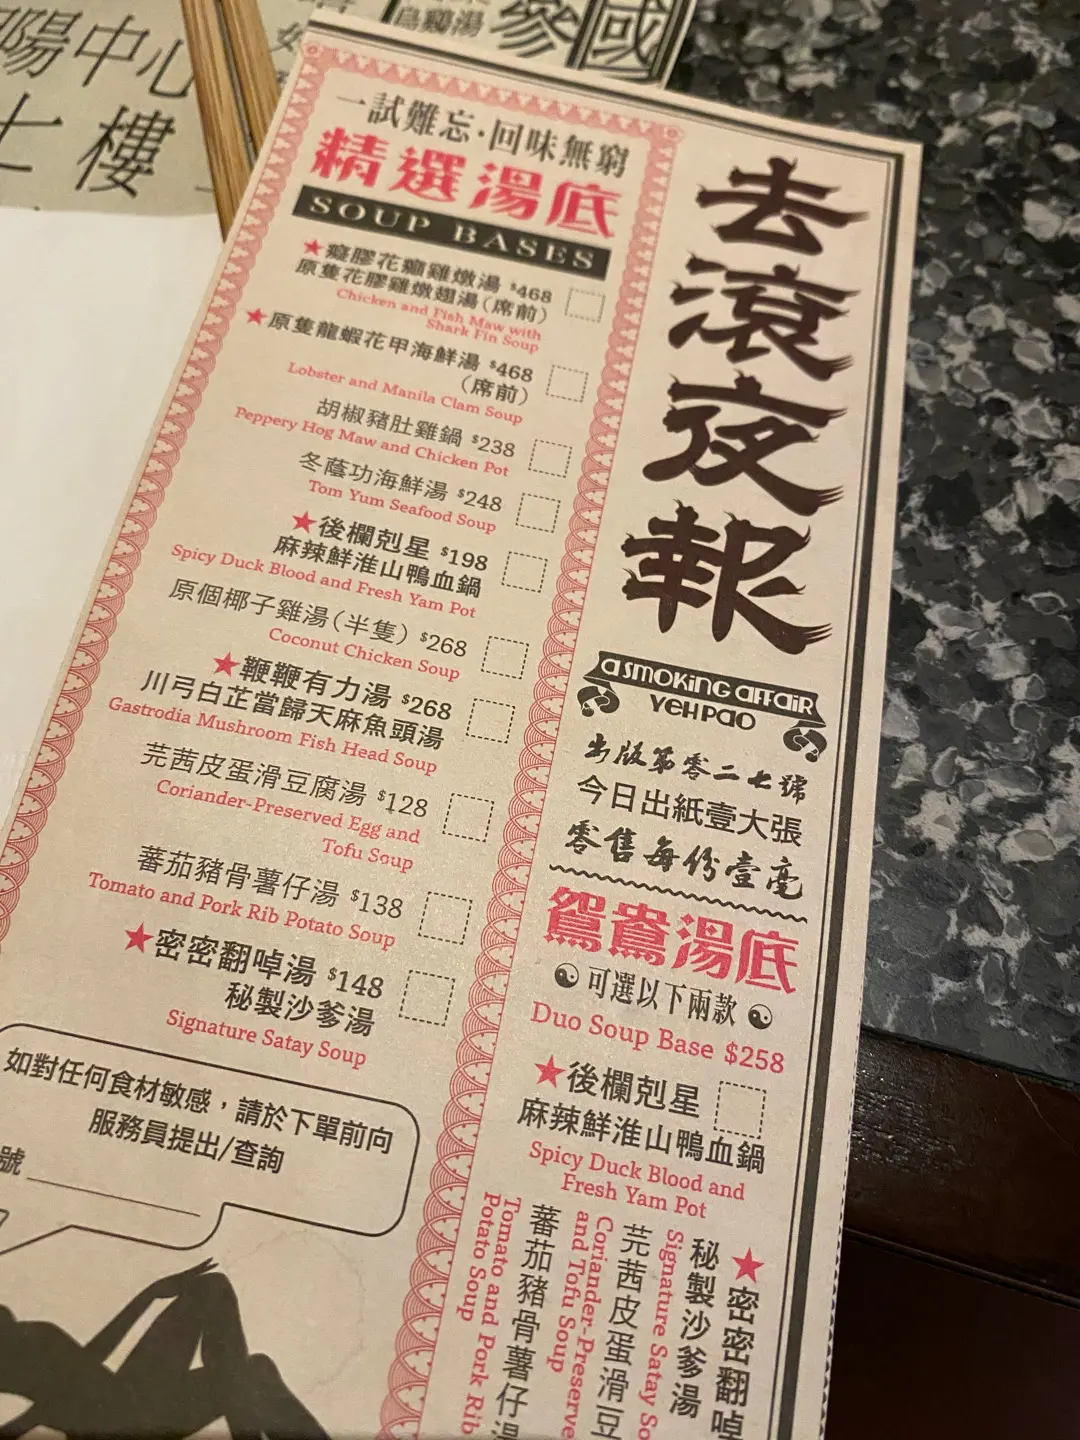 陽中心
士樓
烏鷄湯
參國
一試難忘·回味無窮
精選湯底
SOUP BASES
★癡膠花癲雞燉湯 $468
原隻花膠雞燉翅湯(席前)
Chicken and Fish Maw with
Shark Fin Soup
★原隻龍蝦花甲海鮮湯 $468
(席前)
Lobster and Manila Clam Soup
胡椒豬肚雞鍋 $238
Peppery Hog Maw and Chicken Pot
冬蔭功海鮮湯 $248
Tom Yum Seafood Soup
★後欄剋星 $198
麻辣鮮淮山鴨血鍋
Spicy Duck Blood and Fresh Yam Pot
原個椰子雞湯(半隻) $268
Coconut Chicken Soup
★鞭鞭有力湯 $268
川弓白芷當歸天麻魚頭湯
Gastrodia Mushroom Fish Head Soup
芫茜皮蛋滑豆腐湯 $128
Coriander-Preserved Egg and
Tofu Soup
蕃茄豬骨薯仔湯 $138
Tomato and Pork Rib Potato Soup
★密密翻啅湯 $148
秘製沙爹湯
Signature Satay Soup
如對任何食材敏感，請於下單前向
服務員提出/查詢
號
去滾夜報
a SMOKING AFFAIR
YEH PAO
出版第零二七號
今日出紙壹大張
零售每份壹毫
鴛鴦湯底
可選以下兩款
Duo Soup Base $258
★後欄剋星
麻辣鮮淮山鴨血鍋
Spicy Duck Blood and
Fresh Yam Pot
★密密翻啅
秘製沙爹湯
Signature Satay So
芫茜皮蛋滑豆
Coriander-Preserve
and Tofu Soup
蕃茄豬骨薯仔湯
Tomato and Pork Rib
Potato Soup